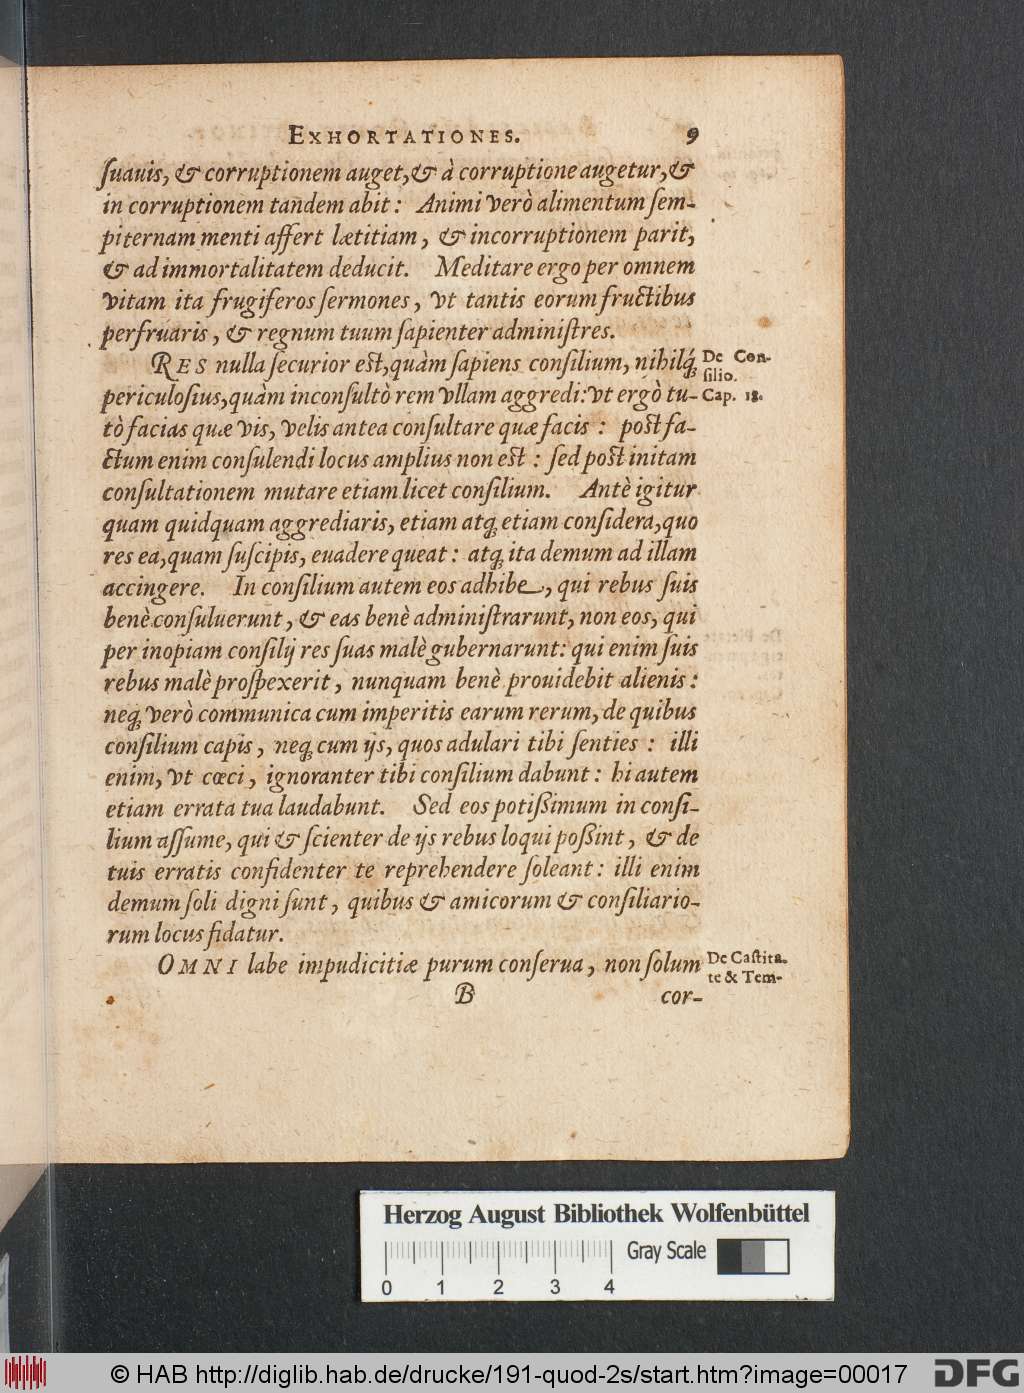 EXHORTATIONES. 9
ſuauis, & corruptionem auget, & à corruptione augetur, &
in corruptionem tandem abit: Animi verò alimentum ſem-
piternam menti affert lætitiam, & incorruptionem parit,
& ad immortalitatem deducit. Meditare ergo per omnem
vitam ita frugiferos ſermones, vt tantis eorum fructibus
perfruaris, & regnum tuum ſapienter adminiſtres.
RES nulla ſecurior est, quàm ſapiens conſilium, nihilq́;
De Con-
ſilio.
Cap. 18.
periculoſius, quàm inconſultò rem vllam aggredi: vt ergò tu-
tò facias quæ vis, velis antea conſultare quæ facis: post fa-
ctum enim conſulendi locus amplius non est: ſed post initam
conſultationem mutare etiam licet conſilium. Antè igitur
quam quidquam aggrediaris, etiam atq; etiam conſidera, quo
res ea, quam ſuſcipis, euadere queat: atq; ita demum ad illam
accingere. In conſilium autem eos adhibe, qui rebus ſuis
benè conſuluerunt, & eas benè adminiſtrarunt, non eos, qui
per inopiam conſilij res ſuas malè gubernarunt: qui enim ſuis
rebus malè proſpexerit, nunquam benè prouidebit alienis:
neq; verò communica cum imperitis earum rerum, de quibus
conſilium capis, neq; cum ijs, quos adulari tibi ſenties: illi
enim, vt cœci, ignoranter tibi conſilium dabunt: hi autem
etiam errata tua laudabunt. Sed eos potißimum in conſi-
lium aſſume, qui & ſcienter de ijs rebus loqui poßint, & de
tuis erratis confidenter te reprehendere ſoleant: illi enim
demum ſoli digni ſunt, quibus & amicorum & conſiliario-
rum locus fidatur.
OMNI labe impudicitiæ purum conſerua, non ſolum
De Caſtita-
te & Tem-
B cor-
Herzog August Bibliothek Wolfenbüttel
Gray Scale
0 1 2 3 4
© HAB http://diglib.hab.de/drucke/191-quod-2s/start.htm?image=00017
DFG